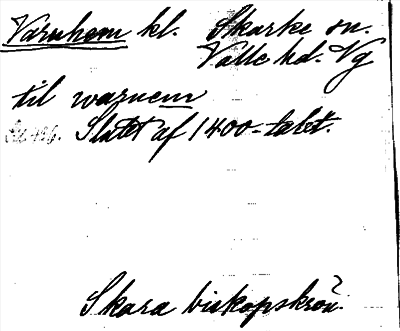 Varnhem kl. Skarke sn.
Valle hd. Vg
til warnem
Slutet af 1400-talet.
Skara biskopskrön.